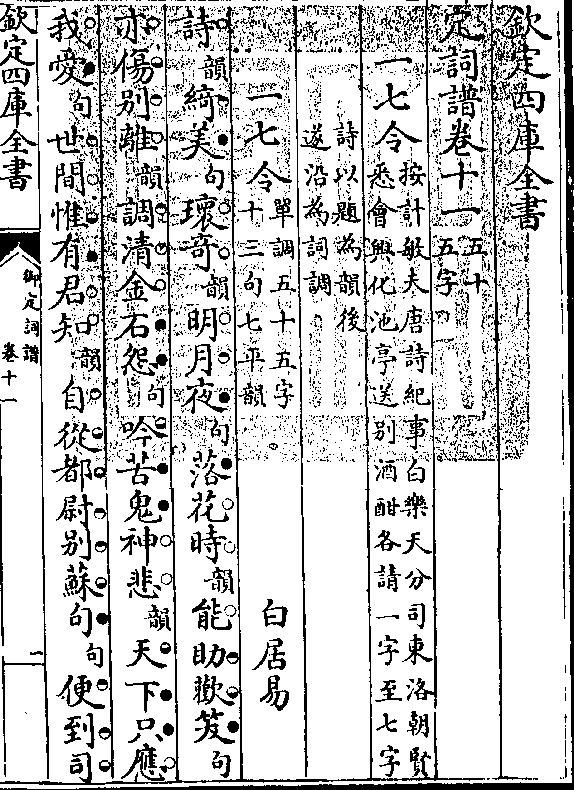 欽定四庫全書
定詞譜卷十一
五十
五字
一七令
按計敏夫唐詩紀事白樂天分司東洛朝賢
悉會興化池亭送別酒酣各請一字至七字
詩以題為韻後
遂沿為詞調
一七令
單調五十五字
十三句七平韻
白居易
詩韻綺美句瓌奇韻明月夜句落花時韻能助歡笑句
亦傷別離韻調清金石怨句吟苦鬼神悲韻天下只應
我愛句世間惟有君知韻自從都尉別蘇句句便到司
欽定四庫全書
御定詞譜
卷十一
一